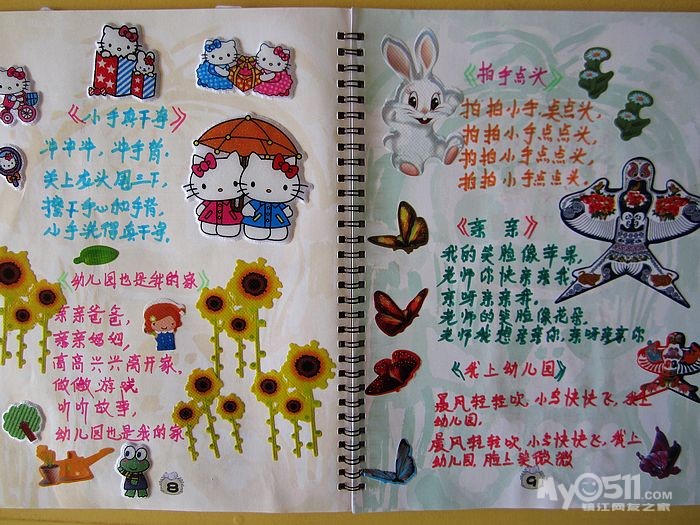 《小手真干净》
冲冲冲，冲手背，
关上龙头甩三下，
擦干手心和手背，
小手洗得真干净。
《幼儿园也是我的家》
亲亲爸爸，
亲亲妈妈，
高高兴兴离开家，
做做游戏
听听故事，
幼儿园也是我的家
8
《拍手点头》
拍拍小手点点头，
拍拍小手点点头，
拍拍小手点点头，
拍拍小手点点头，
《亲亲》
我的笑脸像苹果，
老师你快亲亲我，
亲呀亲亲我，
老师的笑脸像花朵，
老师我想亲亲你，亲呀亲亲你
《我上幼儿园》
晨风轻轻吹，小鸟快快飞，我上
幼儿园，
晨风轻轻吹，小鸟快快飞，我上
幼儿园，脸上笑微微
9
My0511.com
镇江网友之家